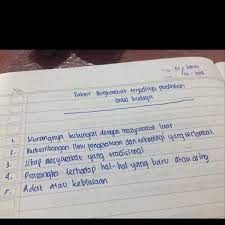 Faktor Penghambat terjadinya perubahan
sosial budaya
1. Kurangnya hubungan dengan masyarakat luar
2. Perkembangan ilmu pengetahuan dan teknologi yang terlambat
3. Sikap masyarakat yang tradicional
4. Prasangka terhadap hal-hal yang baru atau asing
5. Adat atau kebiasaan